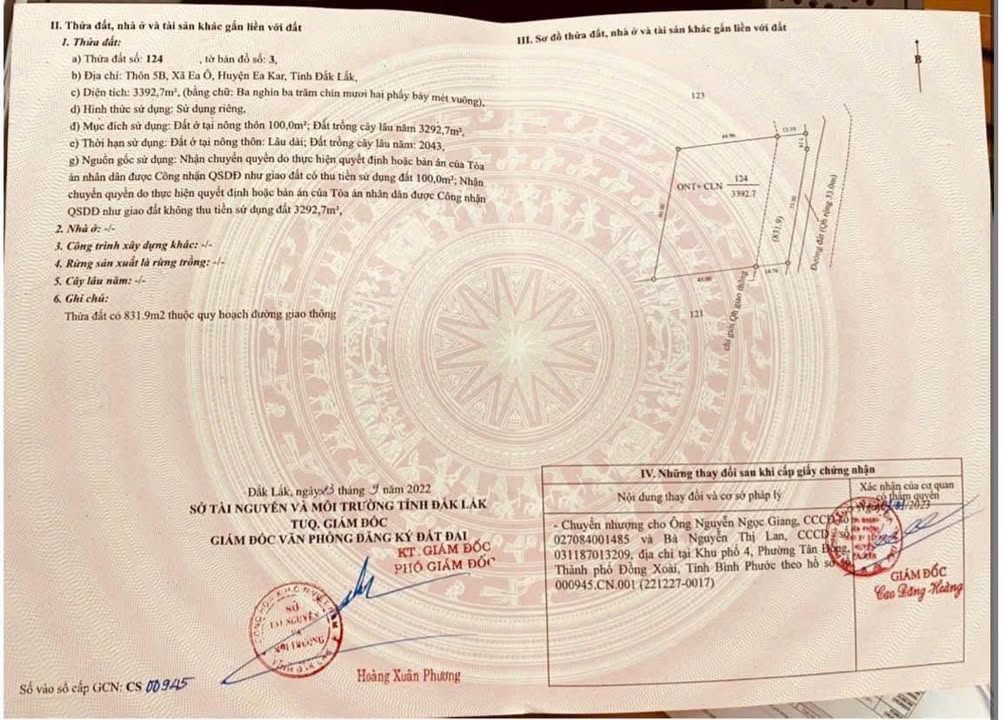 II. Thửa đất, nhà ở và tài sản khác gắn liền với đất
1. Thửa đất:
a) Thửa đất số: 124 , tờ bản đồ số: 3,
b) Địa chỉ: Thôn 5B, Xã Ea Ô, Huyện Ea Kar, Tỉnh Đắk Lắk,
c) Diện tích: 3392,7m², (bằng chữ: Ba nghìn ba trăm chín mươi hai phẩy bảy mét vuông),
d) Hình thức sử dụng: Sử dụng riêng,
đ) Mục đích sử dụng: Đất ở tại nông thôn 100,0m²; Đất trồng cây lâu năm 3292,7m²,
e) Thời hạn sử dụng: Đất ở tại nông thôn: Lâu dài; Đất trồng cây lâu năm: 2043,
g) Nguồn gốc sử dụng: Nhận chuyển quyền do thực hiện quyết định hoặc bản án của Tòa
án nhân dân được Công nhận QSDĐ như giao đất có thu tiền sử dụng đất 100,0m²; Nhận
chuyển quyền do thực hiện quyết định hoặc bản án của Tòa án nhân dân được Công nhận
QSDĐ như giao đất không thu tiền sử dụng đất 3292,7m²,
2. Nhà ở: -/-
3. Công trình xây dựng khác: -/-
4. Rừng sản xuất là rừng trồng: -/-
5. Cây lâu năm: -/-
6. Ghi chú:
Thửa đất có 831.9m2 thuộc quy hoạch đường giao thông
Đắk Lắk, ngày 23 tháng 9 năm 2022
SỞ TÀI NGUYÊN VÀ MÔI TRƯỜNG TỈNH ĐẮK LẮK
TUQ. GIÁM ĐỐC
GIÁM ĐỐC VĂN PHÒNG ĐĂNG KÝ ĐẤT ĐAI
KT. GIÁM ĐỐC
PHÓ GIÁM ĐỐC
SỞ
TÀI NGUYÊN
VÀ
MÔI TRƯỜNG
Hoàng Xuân Phương
Số vào sổ cấp GCN: CS 00945
III. Sơ đồ thửa đất, nhà ở và tài sản khác gắn liền với đất
B
123
ONT+CLN
124
3392.7
(831.9)
Đường đất (Qh rộng 33.0m)
chỉ giới Qh giao thông
121
IV. Những thay đổi sau khi cấp giấy chứng nhận
Nội dung thay đổi và cơ sở pháp lý
Xác nhận của cơ quan
có thẩm quyền
- Chuyển nhượng cho Ông Nguyễn Ngọc Giang, CCCD số
027084001485 và Bà Nguyễn Thị Lan, CCCD số
031187013209, địa chỉ tại Khu phố 4, Phường Tân Đồng,
Thành phố Đồng Xoài, Tỉnh Bình Phước theo hồ sơ số
000945.CN.001 (221227-0017)
GIÁM ĐỐC
Cao Đăng Hoàng